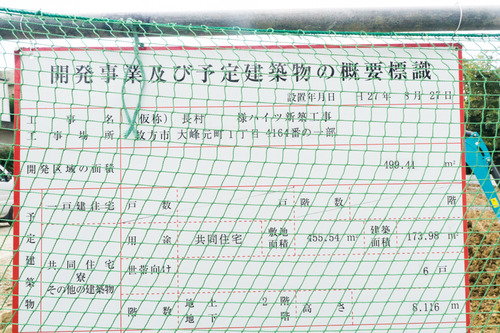 開発事業及び予定建築物の概要標識
設置年月日 日27年 8月27日
工事名 (仮称) 長村 様ハイツ新築工事
工事場所 枚方市 大峰元町1丁目4164番の一部
開発区域の面積 499.41 m²
予定建築物
一戸建住宅 戸数 戸 階数 階
共同住宅 寮 その他の建築物
用途 共同住宅 敷地面積 455.54 m² 建築面積 173.98 m²
世帯向け 6戸
階数 地上 2階 地下 階 高さ 8.116 m